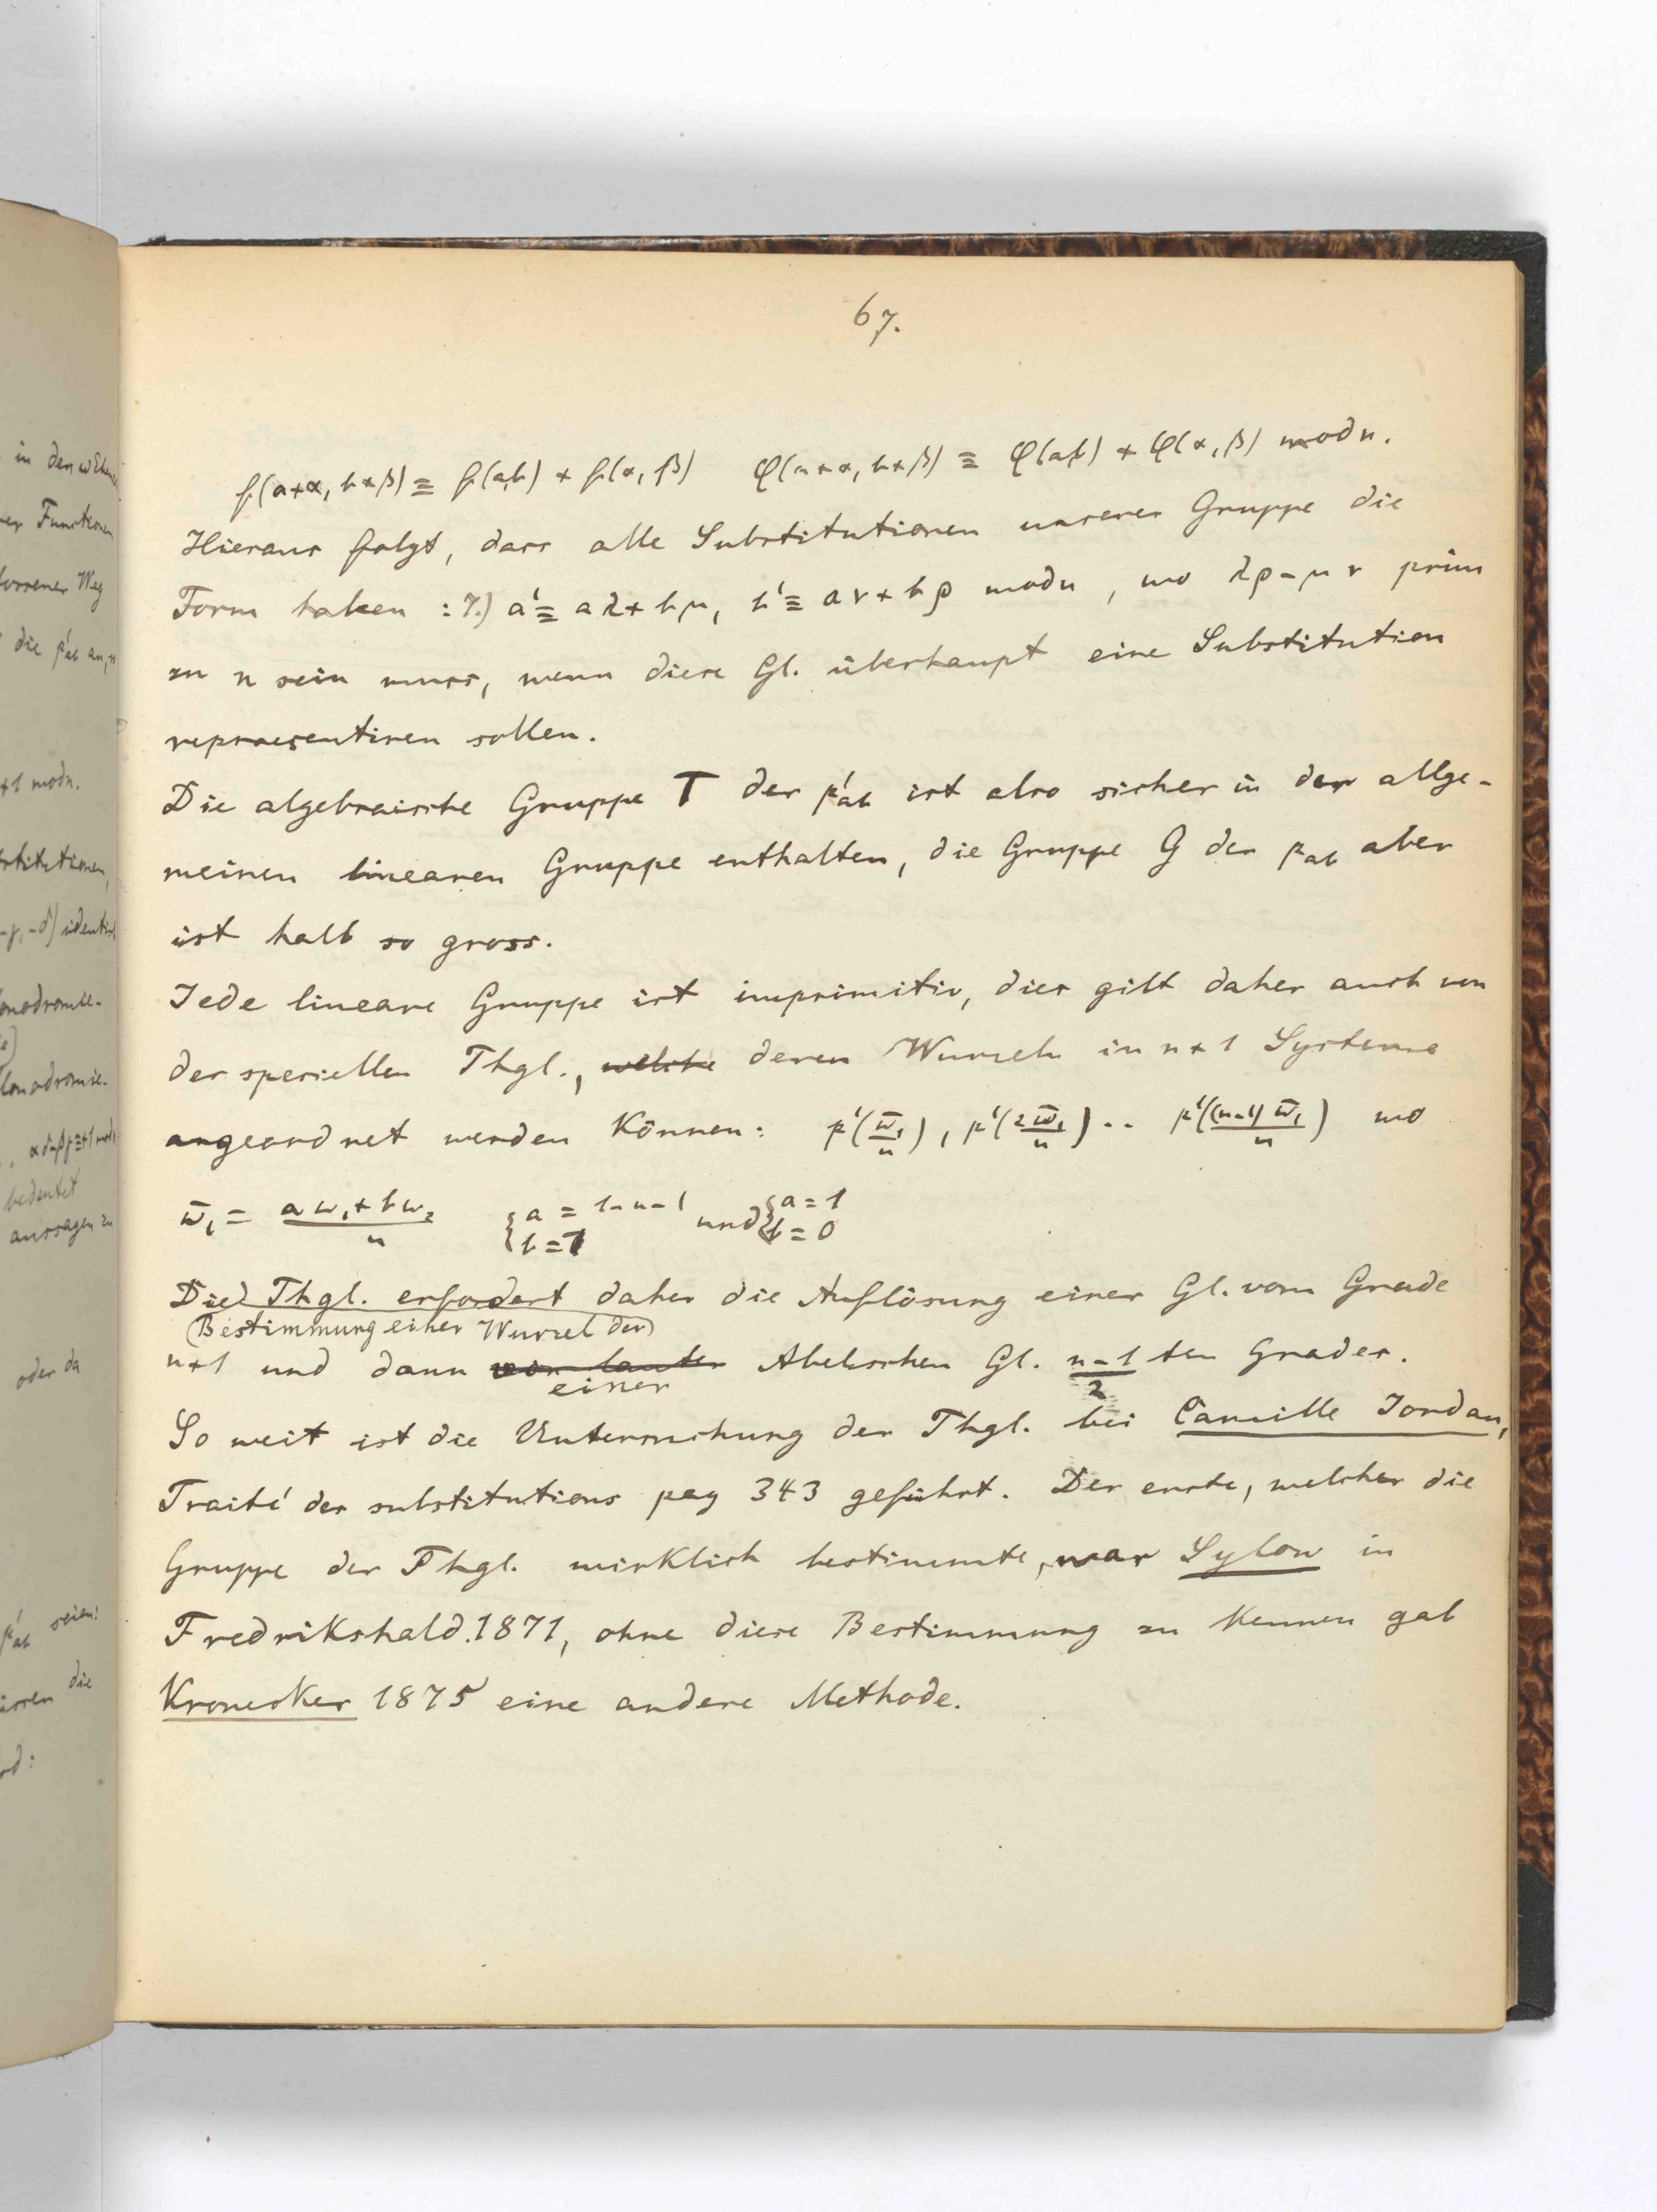 67.
f(a+α, b+β) ≡ f(a,b) + f(α, β) φ(a+α, b+β) ≡ φ(a,b) + φ(α, β) mod n.
Hieraus folgt, dass alle Substitutionen unserer Gruppe die
Form haben : 7.) a' ≡ aλ + bμ, b' ≡ aν + bρ mod n, wo λρ - μν prim
zu n sein muss, wenn diese Gl. überhaupt eine Substitution
repraesentiren sollen.
Die algebraische Gruppe T der p'ab ist also sicher in der allge-
meinen linearen Gruppe enthalten, die Gruppe G der pab aber
ist halb so gross.
Jede lineare Gruppe ist imprimitiv, dies gilt daher auch von
der speciellen Thgl., welche deren Wurzeln in n+1 Systeme
angeordnet werden können: p'(ω̄₁/n), p'(2ω̄₁/n) .. p'((n-1)ω̄₁/n) wo
ω̄₁ = (aω₁ + bω₂)/n {a = 1-n-1 b = 1 und {a = 1 b = 0
Die Thgl. erfordert daher die Auflösung einer Gl. vom Grade
(Bestimmung einer Wurzel der)
n+1 und dann von lauter einer Abelschen Gl. (n-1)/2 ten Grades.
So weit ist die Untersuchung der Thgl. bei Camille Jordan,
Traité des substitutions pag 343 geführt. Der erste, welcher die
Gruppe der Thgl. wirklich bestimmte, war Sylow in
Fredrikshald. 1871, ohne diese Bestimmung zu kennen gab
Kronecker 1875 eine andere Methode.
in den
Functionen
Weg
die p'ab an,
+1 mod n.
identisch
bedeutet
aussagen zu
oder da
p'ab seien!
die